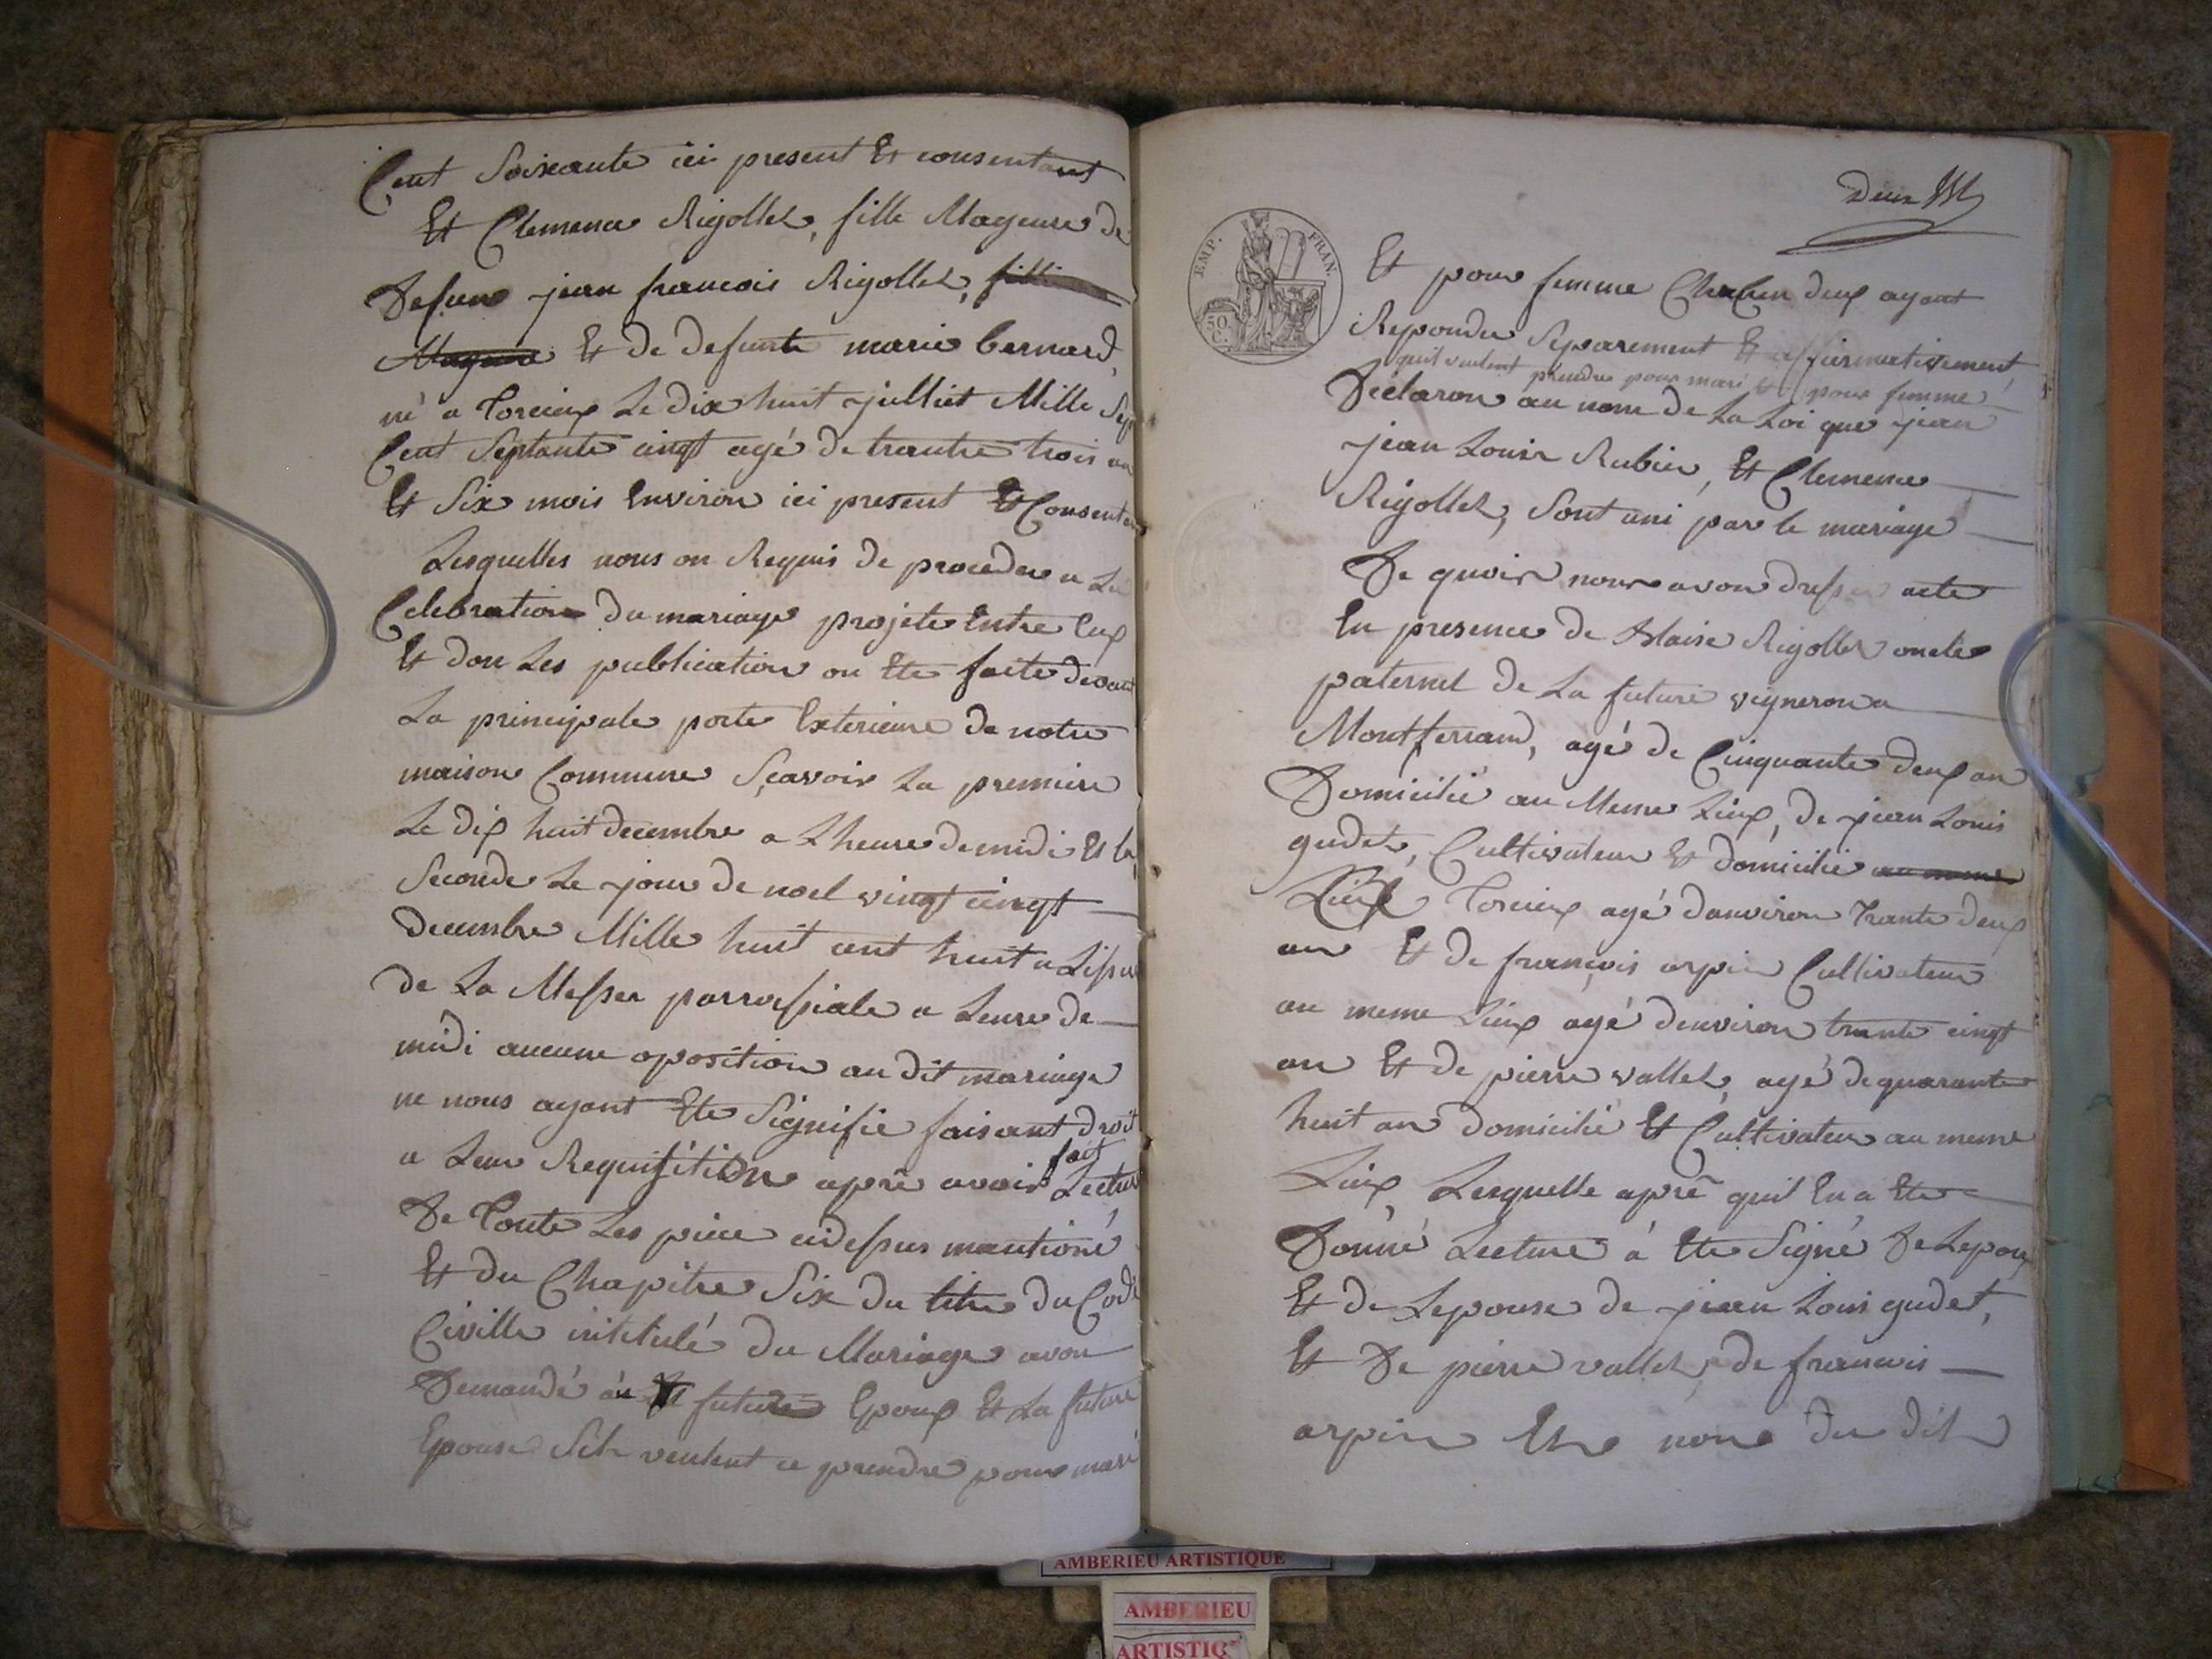 Cent Soixante ici present Et consentant
Et Clemence Rigollet, fille Mageure de
Defunt jean francois Rigollet, fille
Mageure Et de defunte marie bernard,
né a Torcieux Le dix huit julliet Mille Sep
Cent Septante cinqt agé de trantre trois an
Et Six mois Environ ici present Et Consentan
Lesquelles nous on Requis de proceder a La
Celebration du mariage projete Entre Eux
Et don Les publication on Ete faite devant
La principale porte Exterieure de notre
maison Commune Sçavoir La premiere
Le dix huit decembre a Lheure de midi Et la
Seconde Le jour de noel vingt cinqt
decembre Mille huit cent huit a Lissue
de La Messe parrossiale a Leure de
midi aucune oposition au dit mariage
ne nous ayant Ete Signifie faisant droit
a Leur Requisition aprê avoir fait Lecture
De Toute Les piece cidessus mantioné
Et du Chapitre Six du titre du Code
Civille intitulé du Mariage avon
Demandé au future Epoux Et La future
Epouse Sils veulent ce prendre pour mari
Deux
EMP. FRAN.
50 C.
Et pour femme Chacun deux ayant
Repondu Séparement Et affirmativement
quil veulent prendre pour mari et pour femme
Déclaron au nom de La Loi que jean
jean Louis Rubin, Et Clemence
Rigollet, Sont uni par le mariage
De quoir nous avon dressé acte
En presence de blaise Rigollet oncle
paternel de La future vigneron a
Montferrand, agé de Cinquante deux an
Domicilié au Meme Lieux, de jean Louis
gudet, Cultivateur Et domicilié au meme
Lieux Torcieux agé danviron Trante deux
an Et de françois arpin Cultivateur
au meme Lieux agé denviron trante cinqt
an Et de pierre vallet, agé de quarante
huit an Domicilié Et Cultivateur au meme
Lieux, Lesquelle aprê quil En a Ete
Donné Lecture à Ete Signé De Lepoux
Et de Lepouse de jean Louis gudet,
Et De pierre vallet, de francois
arpin Et non du dit
AMBERIEU ARTISTIQUE
AMBERIEU
ARTISTIQ